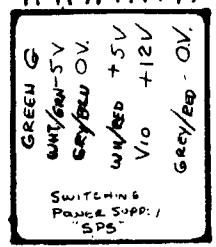 GREEN G
WHT/GRN -5V
GRY/BRU 0V.
WH/RED +5V
VIO +12V
GREY/RED - 0.V.
SWITCHING
POWER SUPP:/
"SPS"